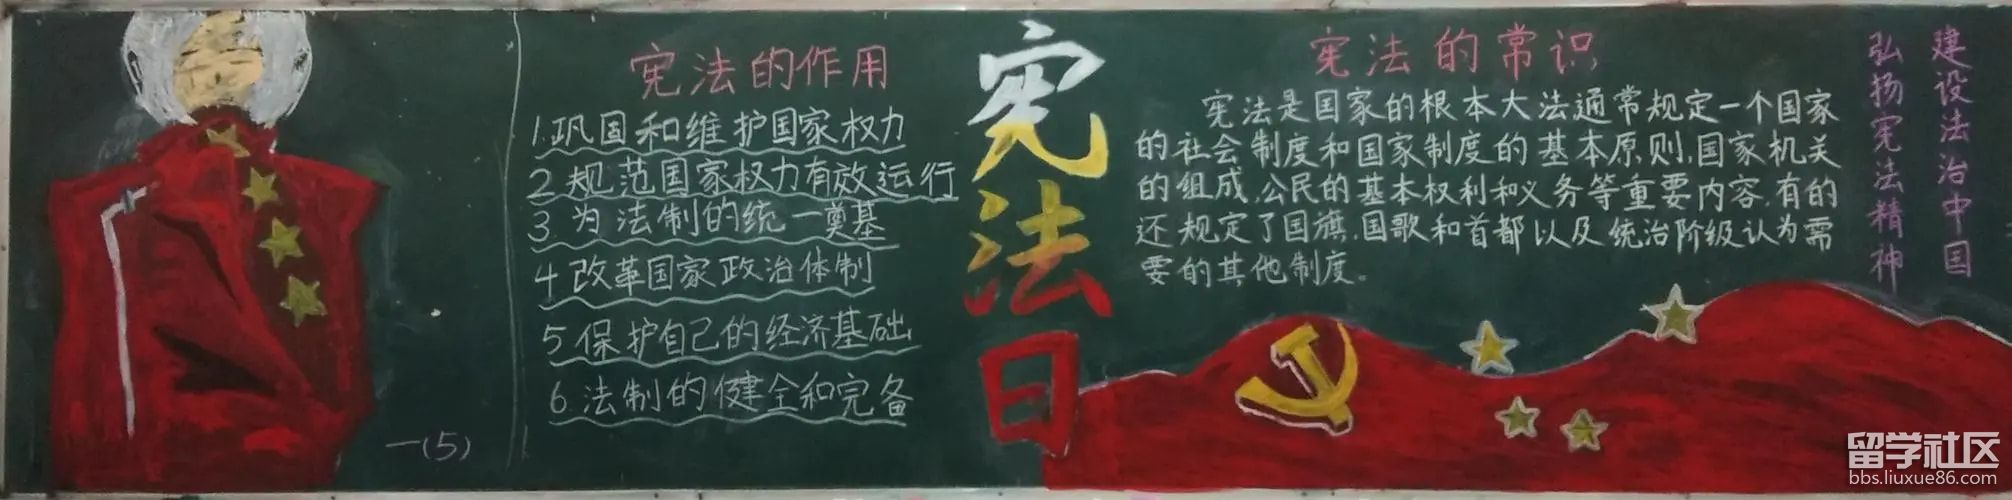 宪法的作用
1.巩固和维护国家权力
2.规范国家权力有效运行
3.为法制的统一奠基
4改革国家政治体制
5保护自己的经济基础
6.法制的健全和完备
一(5)
宪法日
宪法的常识
宪法是国家的根本大法通常规定一个国家
的社会制度和国家制度的基本原则,国家机关
的组成,公民的基本权利和义务等重要内容,有的
还规定了国旗,国歌和首都以及统治阶级认为需
要的其他制度。
建设法治中国
弘扬宪法精神
留学社区
bbs.liuxue86.com